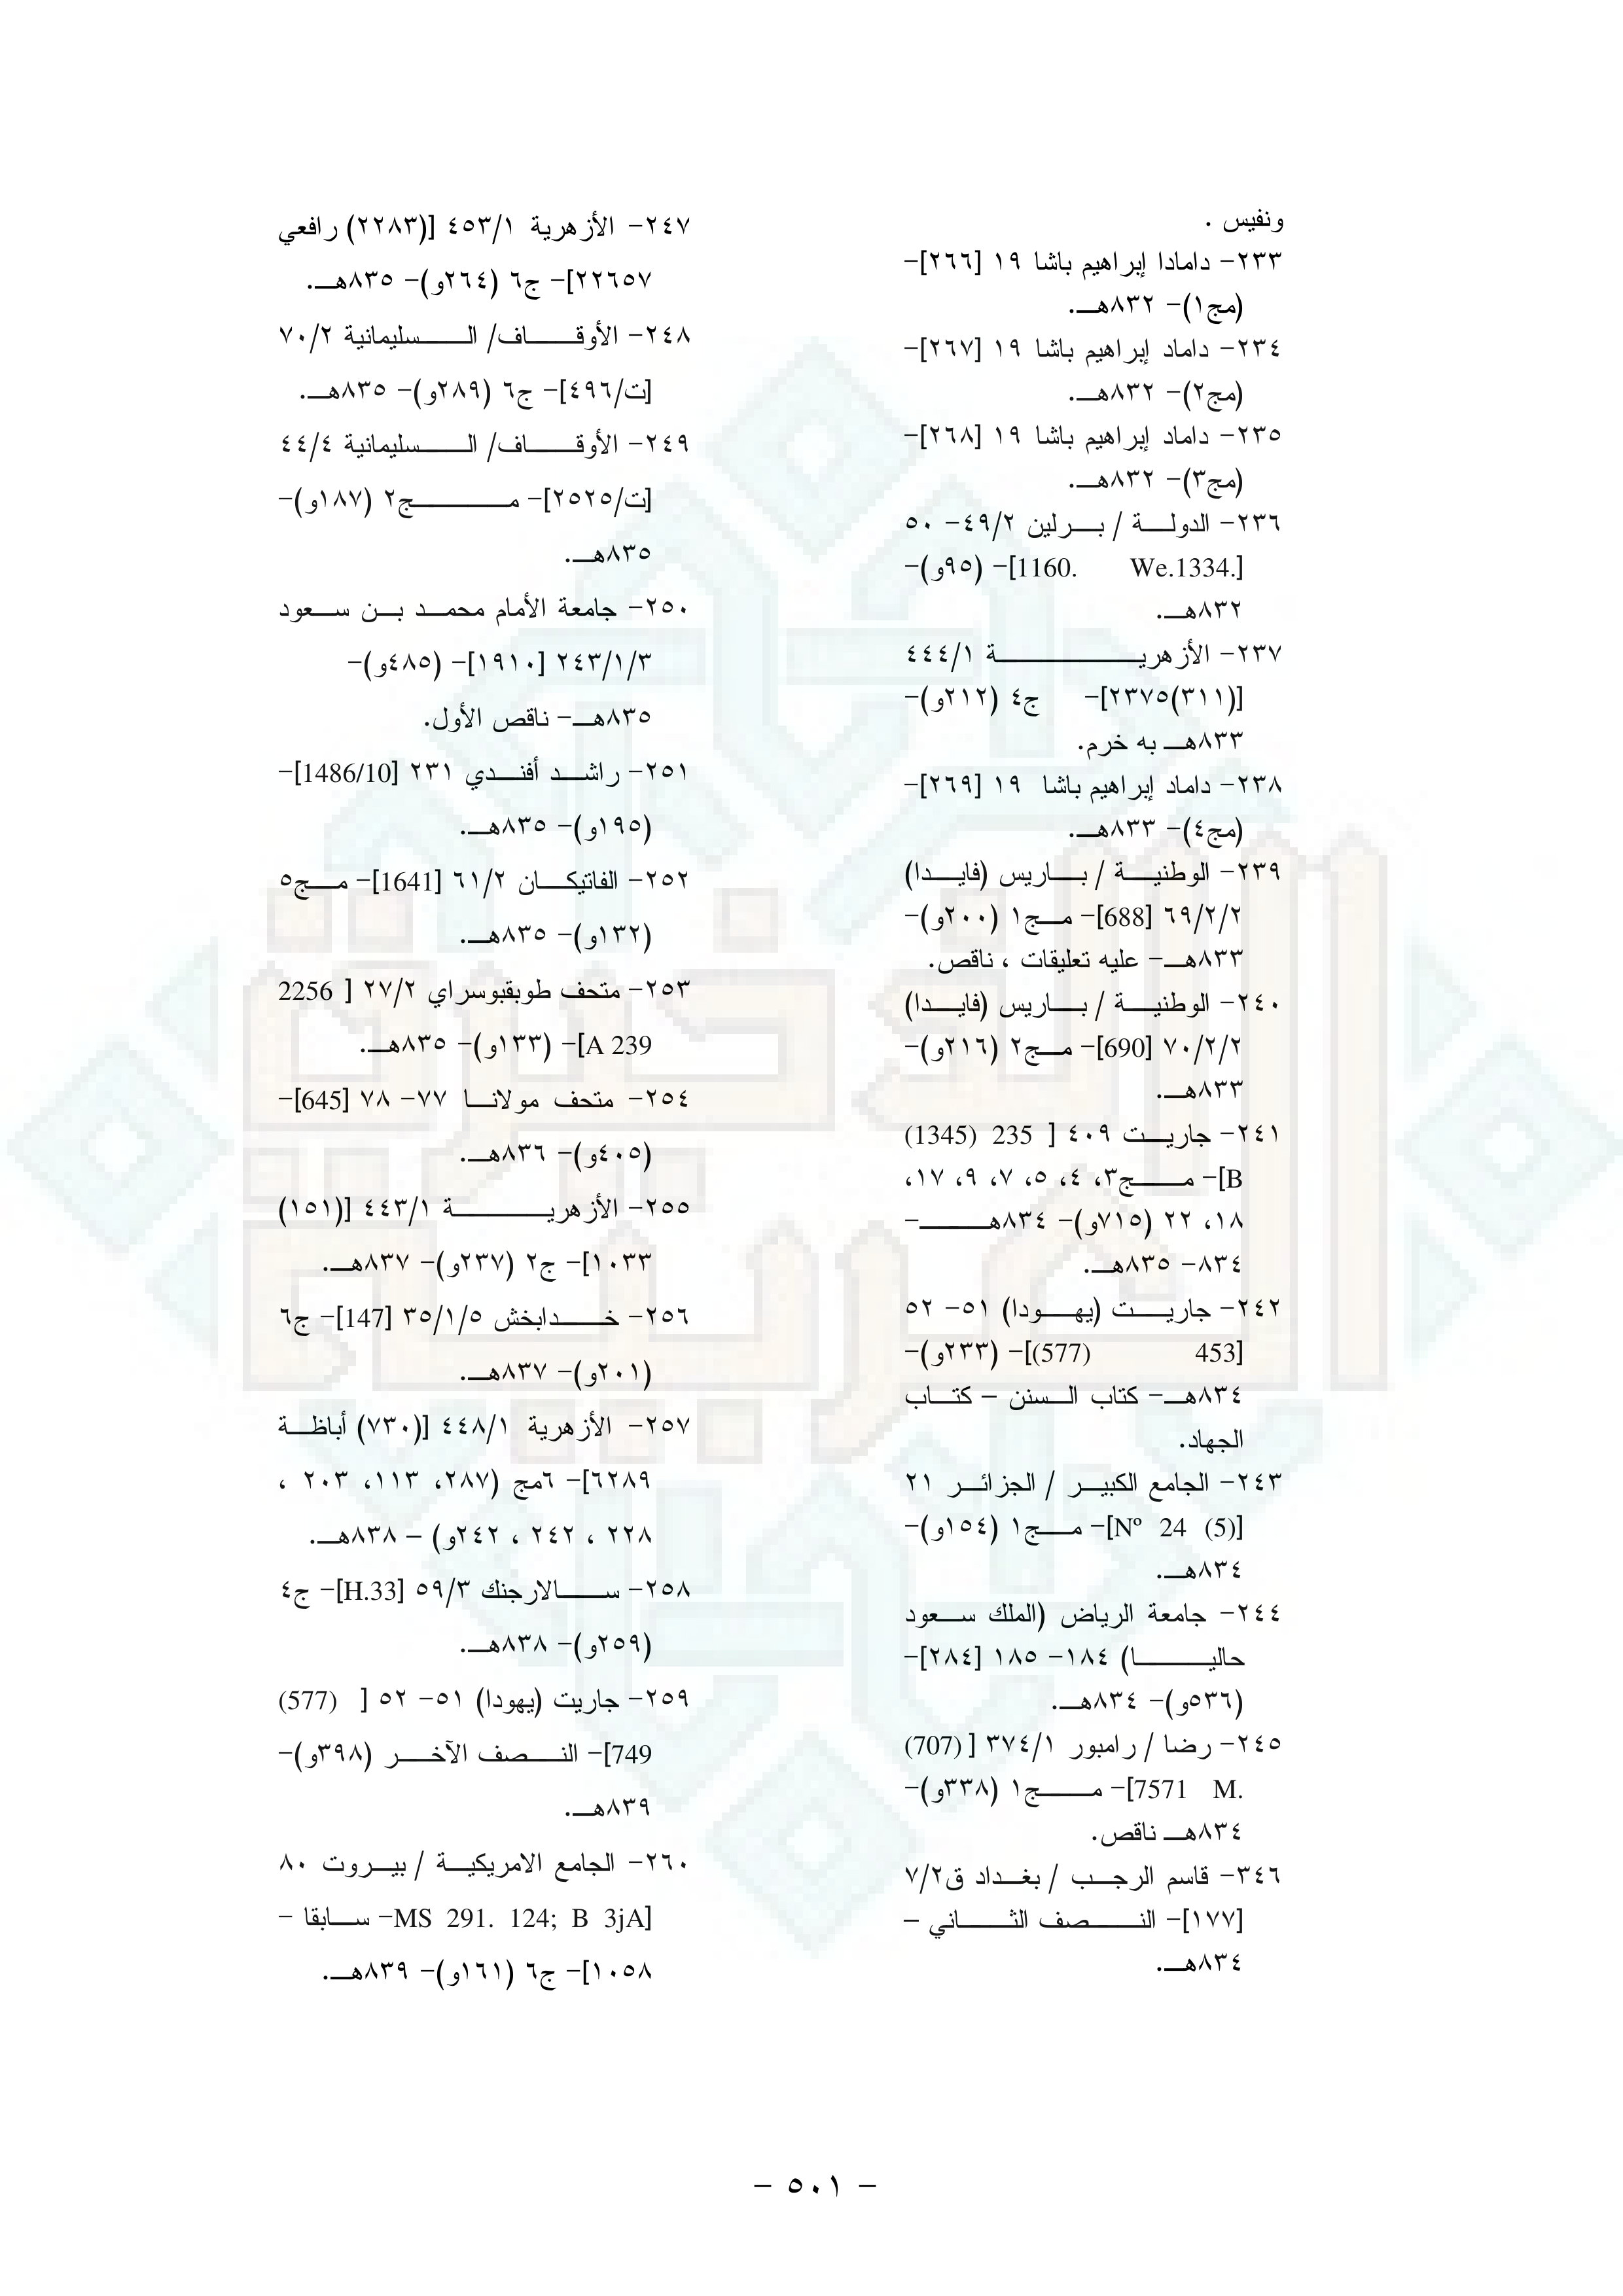 ونفيس .
٢٣٣- دامادا إبراهيم باشا ١٩ [٢٦٦]-
(مج١)- ٨٣٢هـ.
٢٣٤- داماد إبراهيم باشا ١٩ [٢٦٧]-
(مج٢)- ٨٣٢هـ.
٢٣٥- داماد إبراهيم باشا ١٩ [٢٦٨]-
(مج٣)- ٨٣٢هـ.
٢٣٦- الدولة / برلين ٤٩/٢- ٥٠
[1160. We.1334.]- (٩٥و)-
٨٣٢هـ.
٢٣٧- الأزهرية ٤٤٤/١
[(٣١١)٢٣٧٥]- ج٤ (٢١٢و)-
٨٣٣هـ به خرم.
٢٣٨- داماد إبراهيم باشا ١٩ [٢٦٩]-
(مج٤)- ٨٣٣هـ.
٢٣٩- الوطنية / باريس (فايدا)
٦٩/٢/٢ [688]- مج١ (٢٠٠و)-
٨٣٣هـ- عليه تعليقات ، ناقص.
٢٤٠- الوطنية / باريس (فايدا)
٧٠/٢/٢ [690]- مج٢ (٢١٦و)-
٨٣٣هـ.
٢٤١- جاريت ٤٠٩ [ 235 (1345)
B]- مج٣، ٤، ٥، ٧، ٩، ١٧،
١٨، ٢٢ (٧١٥و)- ٨٣٤هـ-
٨٣٤- ٨٣٥هـ.
٢٤٢- جاريت (يهودا) ٥١- ٥٢
[453 (577)]- (٢٣٣و)-
٨٣٤هـ- كتاب السنن – كتاب
الجهاد.
٢٤٣- الجامع الكبير / الجزائر ٢١
[Nº 24 (5)]- مج١ (١٥٤و)-
٨٣٤هـ.
٢٤٤- جامعة الرياض (الملك سعود
حاليا) ١٨٤- ١٨٥ [٢٨٤]-
(٥٣٦و)- ٨٣٤هـ.
٢٤٥- رضا / رامبور ٣٧٤/١ [ (707)
7571 M.]- مج١ (٣٣٨و)-
٨٣٤هـ ناقص.
٣٤٦- قاسم الرجب / بغداد ق٧/٢
[١٧٧]- النصف الثاني –
٨٣٤هـ.
٢٤٧- الأزهرية ٤٥٣/١ [(٢٢٨٣) رافعي
٢٢٦٥٧]- ج٦ (٢٦٤و)- ٨٣٥هـ.
٢٤٨- الأوقاف/ السليمانية ٧٠/٢
[ت/٤٩٦]- ج٦ (٢٨٩و)- ٨٣٥هـ.
٢٤٩- الأوقاف/ السليمانية ٤٤/٤
[ت/٢٥٢٥]- مج٢ (١٨٧و)-
٨٣٥هـ.
٢٥٠- جامعة الأمام محمد بن سعود
٢٤٣/١/٣ [١٩١٠]- (٤٨٥و)-
٨٣٥هـ- ناقص الأول.
٢٥١- راشد أفندي ٢٣١ [1486/10]-
(١٩٥و)- ٨٣٥هـ.
٢٥٢- الفاتيكان ٦١/٢ [1641]- مج٥
(١٣٢و)- ٨٣٥هـ.
٢٥٣- متحف طوبقبوسراي ٢٧/٢ [ 2256
A 239]- (١٣٣و)- ٨٣٥هـ.
٢٥٤- متحف مولانا ٧٧- ٧٨ [645]-
(٤٠٥و)- ٨٣٦هـ.
٢٥٥- الأزهرية ٤٤٣/١ [(١٥١)
١٠٣٣]- ج٢ (٢٣٧و)- ٨٣٧هـ.
٢٥٦- خدابخش ٣٥/١/٥ [147]- ج٦
(٢٠١و)- ٨٣٧هـ.
٢٥٧- الأزهرية ٤٤٨/١ [(٧٣٠) أباظة
٦٢٨٩]- ٦مج (٢٨٧، ١١٣، ٢٠٣ ،
٢٢٨ ، ٢٤٢ ، ٢٤٢و) – ٨٣٨هـ.
٢٥٨- سالارجنك ٥٩/٣ [H.33]- ج٤
(٢٥٩و)- ٨٣٨هـ.
٢٥٩- جاريت (يهودا) ٥١- ٥٢ [ (577)
749]- النصف الآخر (٣٩٨و)-
٨٣٩هـ.
٢٦٠- الجامع الامريكية / بيروت ٨٠
[MS 291. 124; B 3jA- سابقا -
١٠٥٨]- ج٦ (١٦١و)- ٨٣٩هـ.
- ٥٠١ -